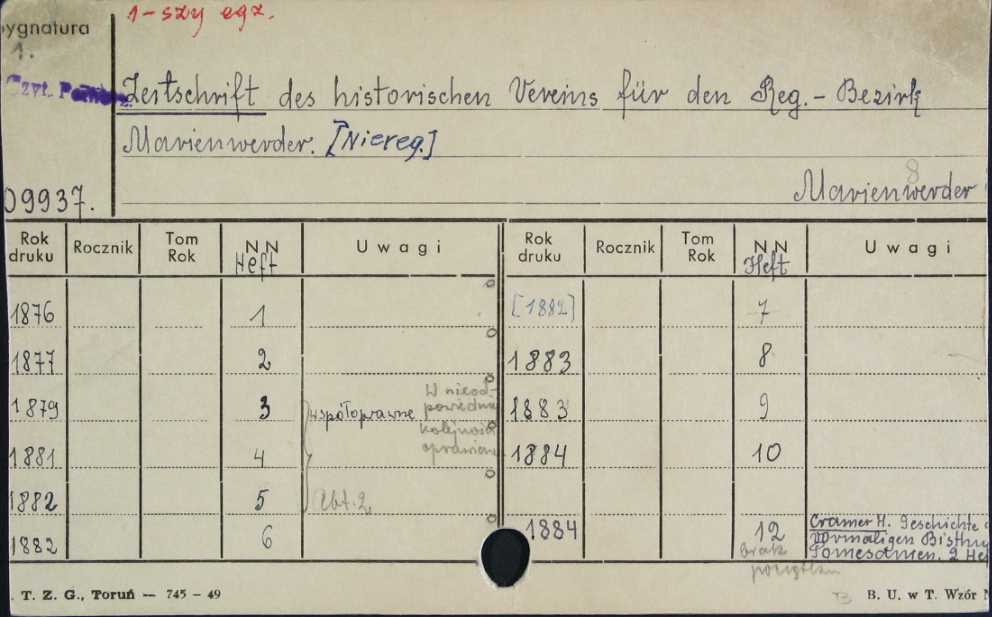 1-szy egz.
Sygnatura
1.
Czyt.
Zeitschrift des historischen Vereins für den Reg.-Bezirk
Marienwerder. [Niereg.]
8
Marienwerder
09937.
Rok druku Rocznik Tom Rok NN Heft Uwagi Rok druku Rocznik Tom Rok NN Heft Uwagi
1876 1 [1882] 7
1877 2 1883 8
1879 3 współoprawne W nieod-
powiedniej 1883 9
kolejności
1881 4 oprawione 1884 10
1882 5 Abt. 2
1882 6 1884 12 Cramer H. Geschichte d
vormaligen Bisthu
Pomesanien. 2 Hef
brak
początku
T. Z. G., Toruń — 745 - 49
B. U. w T. Wzór N